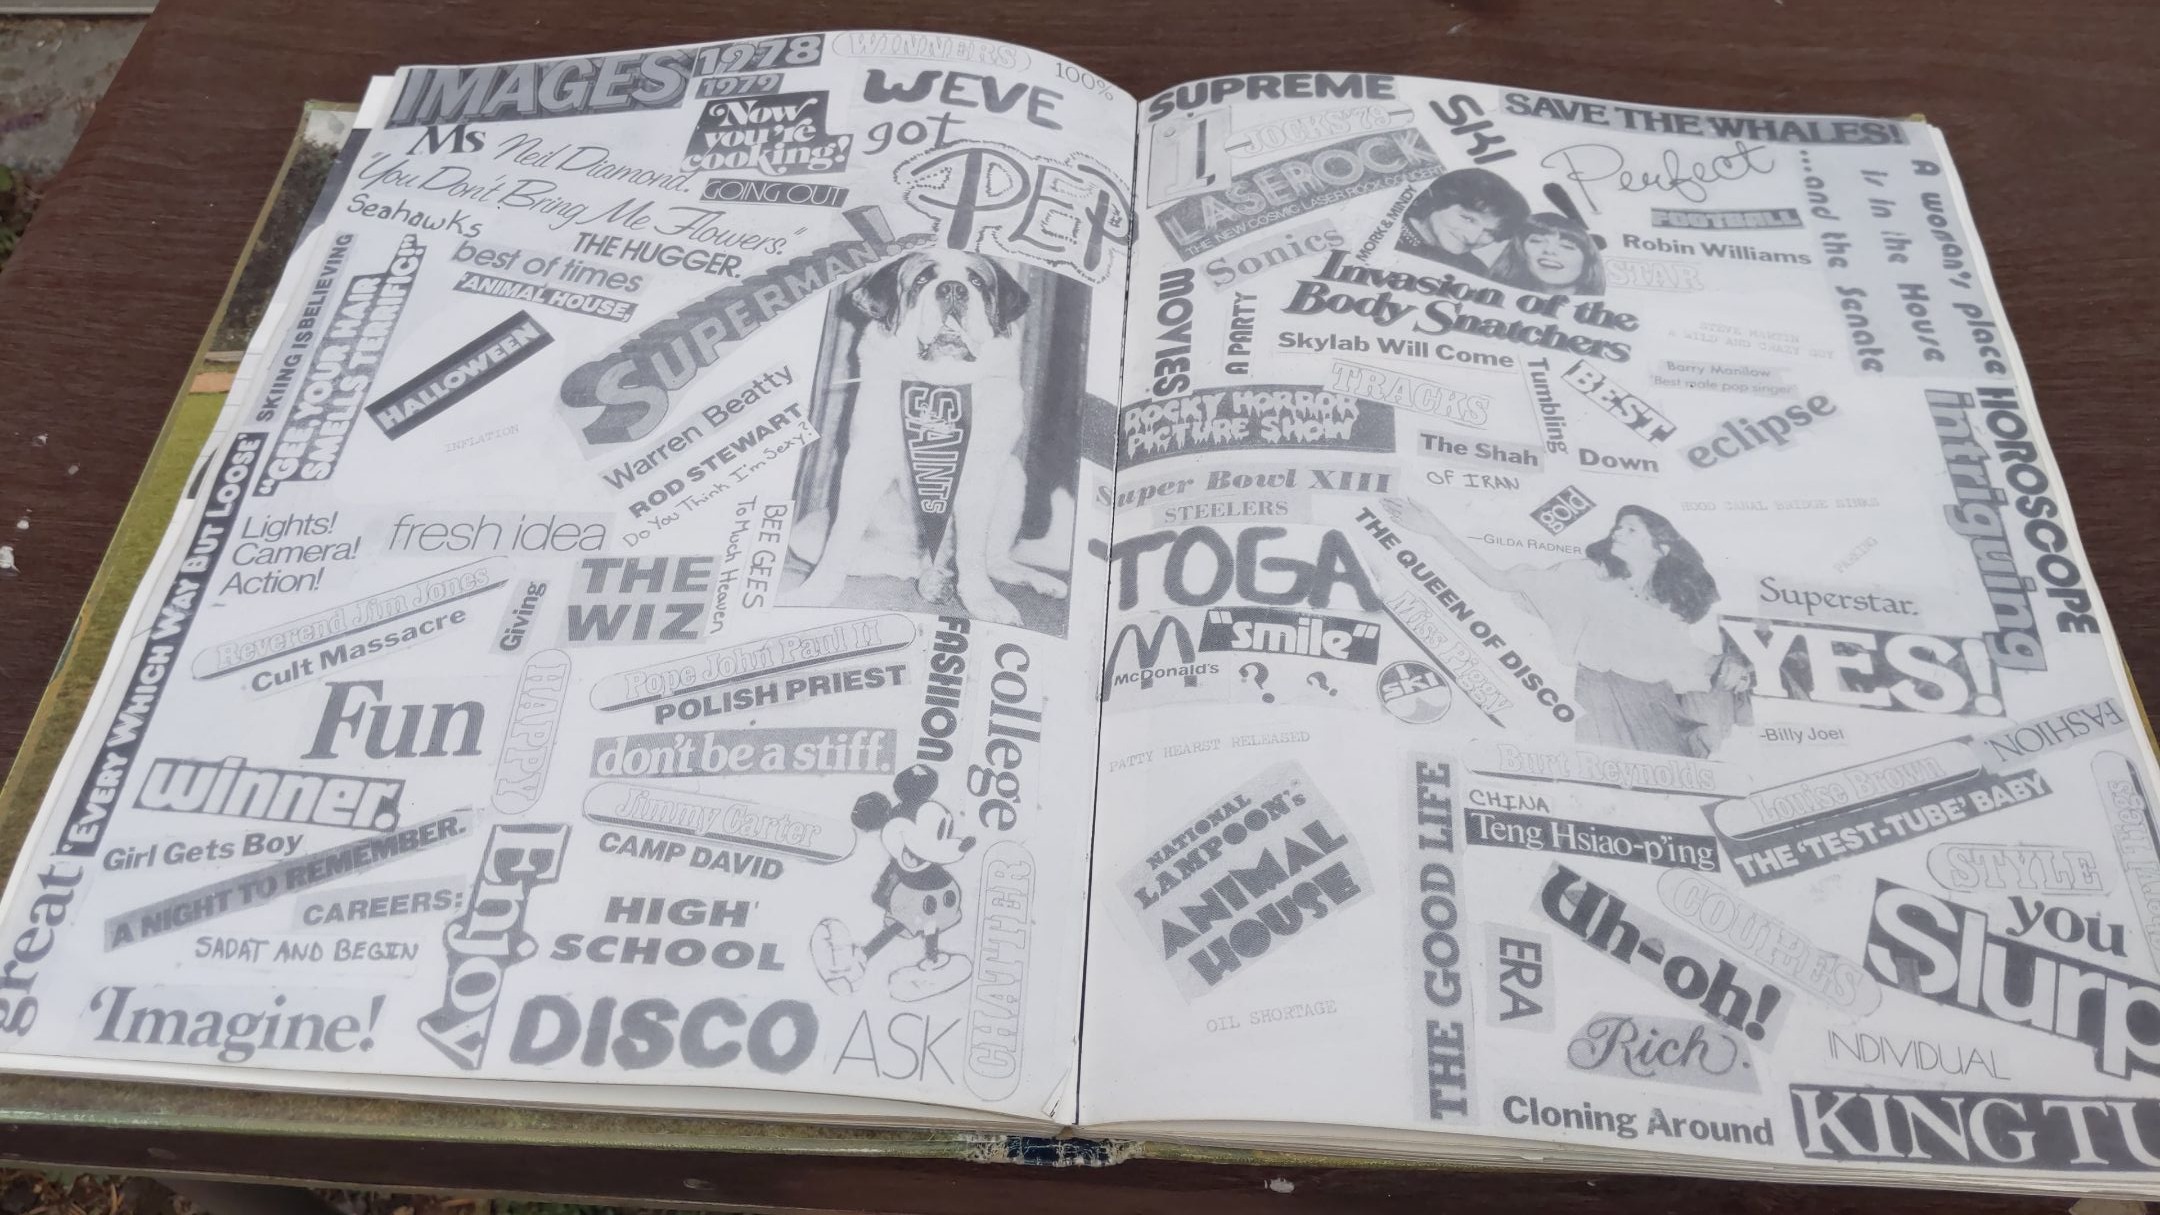 IMAGES 1978
1979
WINNERS
100%
Ms
Neil Diamond.
"You Don't Bring Me Flowers."
Now
you're
cooking!
GOING OUT
WEVE
got
PEP
Seahawks
THE HUGGER.
best of times
'ANIMAL HOUSE,'
SUPERMAN!....
SKIING IS BELIEVING
"GEE, YOUR HAIR
SMELLS TERRIFIC!"
HALLOWEEN
INFLATION
Warren Beatty
ROD STEWART
Do You Think I'm Sexy?
SAINTS
'EVERY WHICH WAY BUT LOOSE'
Lights!
Camera!
Action!
fresh idea
BEE GEES
To Much Heaven
THE
WIZ
Reverend Jim Jones
Cult Massacre
Giving
Pope John Paul II
POLISH PRIEST
FASHION
college
Fun
HAPPY
don't be a stiff.
winner.
Jimmy Carter
CAMP DAVID
Girl Gets Boy
A NIGHT TO REMEMBER.
CAREERS:
Enjoy
HIGH
SCHOOL
CHATTER
great
SADAT AND BEGIN
'Imagine!
DISCO
ASK
SUPREME
1
JOCKS '79
SKI
SAVE THE WHALES!
LASEROCK
THE NEW COSMIC LASER ROCK CONCERT
Perfect!
A woman's place
is in the House
...and the Senate
MORK & MINDY
FOOTBALL
Robin Williams
STAR
Sonics
MOVIES
A PARTY
Invasion of the
Body Snatchers
Skylab Will Come
Tumbling
Down
STEVE MARTIN
A WILD AND CRAZY GUY
Barry Manilow
"Best male pop singer"
TRACKS
BEST
eclipse
ROCKY HORROR
PICTURE SHOW
The Shah
OF IRAN
intriguing
HOROSCOPE
Super Bowl XIII
STEELERS
gold
HOOD CANAL BRIDGE SINKS
—GILDA RADNER
TOGA
THE QUEEN OF DISCO
PARKING
Superstar.
McDonald's
"smile"
? ?
ski
Miss Piggy
YES!
-Billy Joel
PATTY HEARST RELEASED
FASHION.
Burt Reynolds
CHINA
Teng Hsiao-p'ing
Louise Brown
THE 'TEST-TUBE' BABY
NATIONAL
LAMPOON'S
ANIMAL
HOUSE
THE GOOD LIFE
STYLE
COUPLES
Uh-oh!
you
Slurp
ERA
OIL SHORTAGE
Rich.
INDIVIDUAL
Cloning Around
KING TU